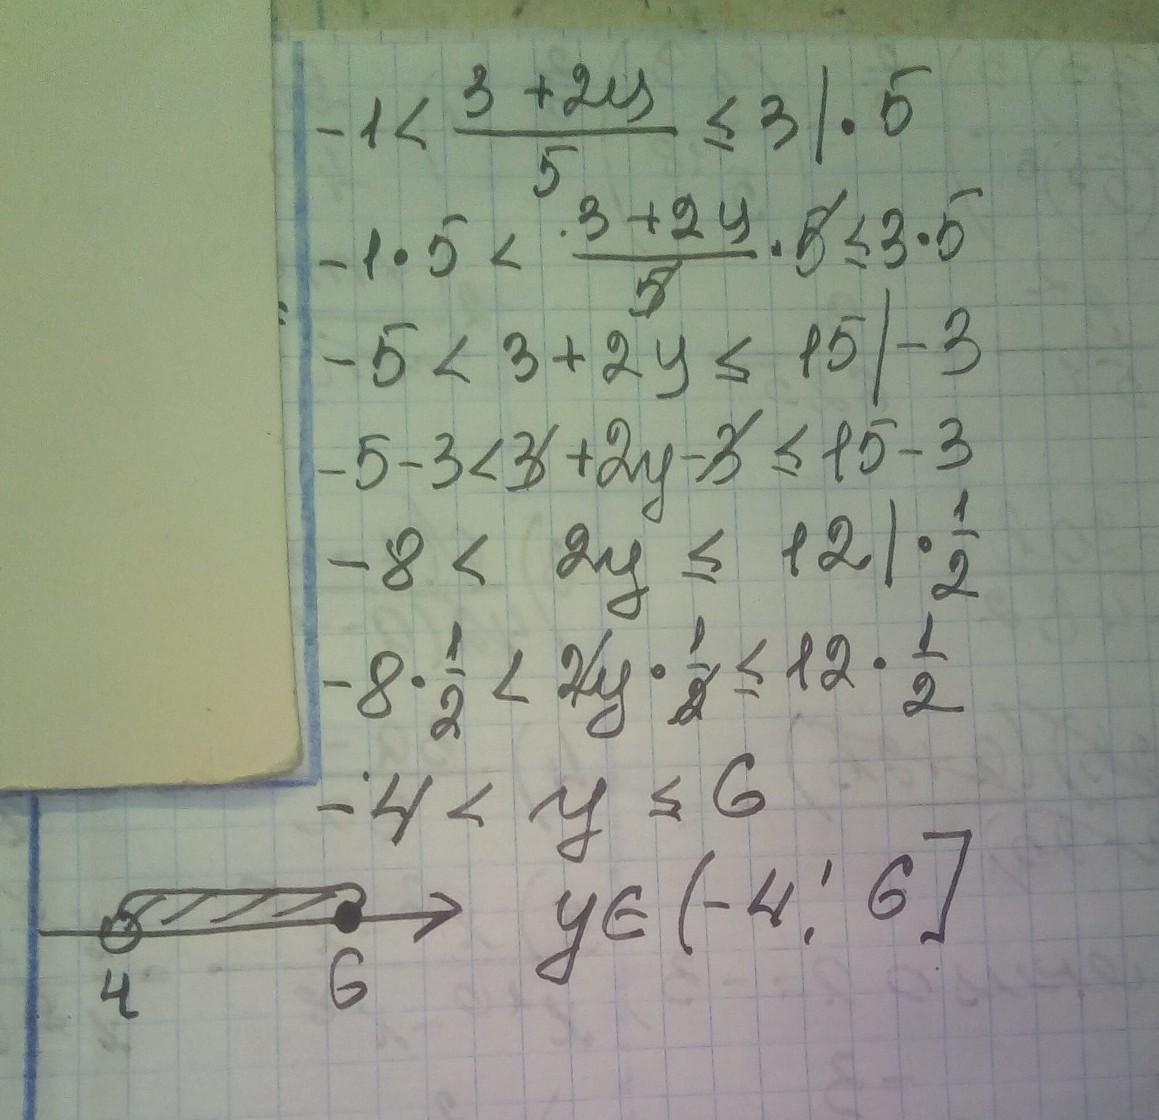 -1 < (3 + 2y)/5 ≤ 3 | · 5
-1 · 5 < (3 + 2y)/5 · 5 ≤ 3 · 5
-5 < 3 + 2y ≤ 15 | - 3
-5 - 3 < 3 + 2y - 3 ≤ 15 - 3
-8 < 2y ≤ 12 | · 1/2
-8 · 1/2 < 2y · 1/2 ≤ 12 · 1/2
-4 < y ≤ 6
y ∈ (-4; 6]
4 6